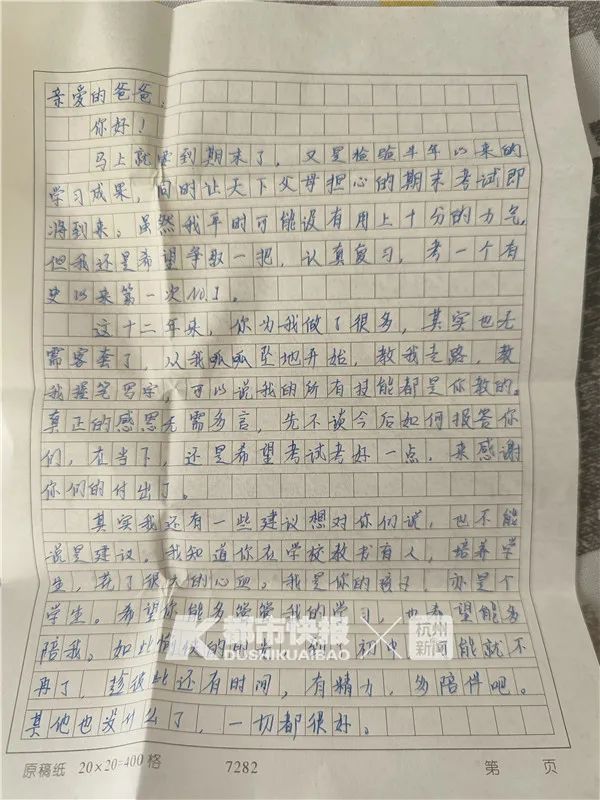 亲爱的爸爸：
你好！
马上就要到期末了，又是检验半年以来的
学习成果，同时让天下父母担心的期末考试即
将到来。虽然我平时可能没有用上十分的力气，
但我还是希望争取一把，认真复习，考一个有
史以来第一次NO.1。
这十二年来，你为我做了很多，其实也无
需客套了，从我呱呱坠地开始，教我走路，教
我握笔写字，可以说我的所有技能都是你教的。
真正的感恩无需多言，先不谈今后如何报答你
们，在当下，还是希望考试考好一点，来感谢
你们的付出了。
其实我还有一些建议想对你们说，也不能
说是建议。我知道你在学校教书育人，培养学
生，花了很大的心血。我是你的孩子，亦是个
学生。希望你能多管管我的学习，也希望能多
陪我。如此的时 到了初中 能就不
再了，趁彼此还有时间，有精力，多陪伴吧。
其他也没什么了，一切都很好。
都市快报 × 杭州新闻
DUSHIKUAIBAO
原稿纸 20×20=400格 7282 第 页